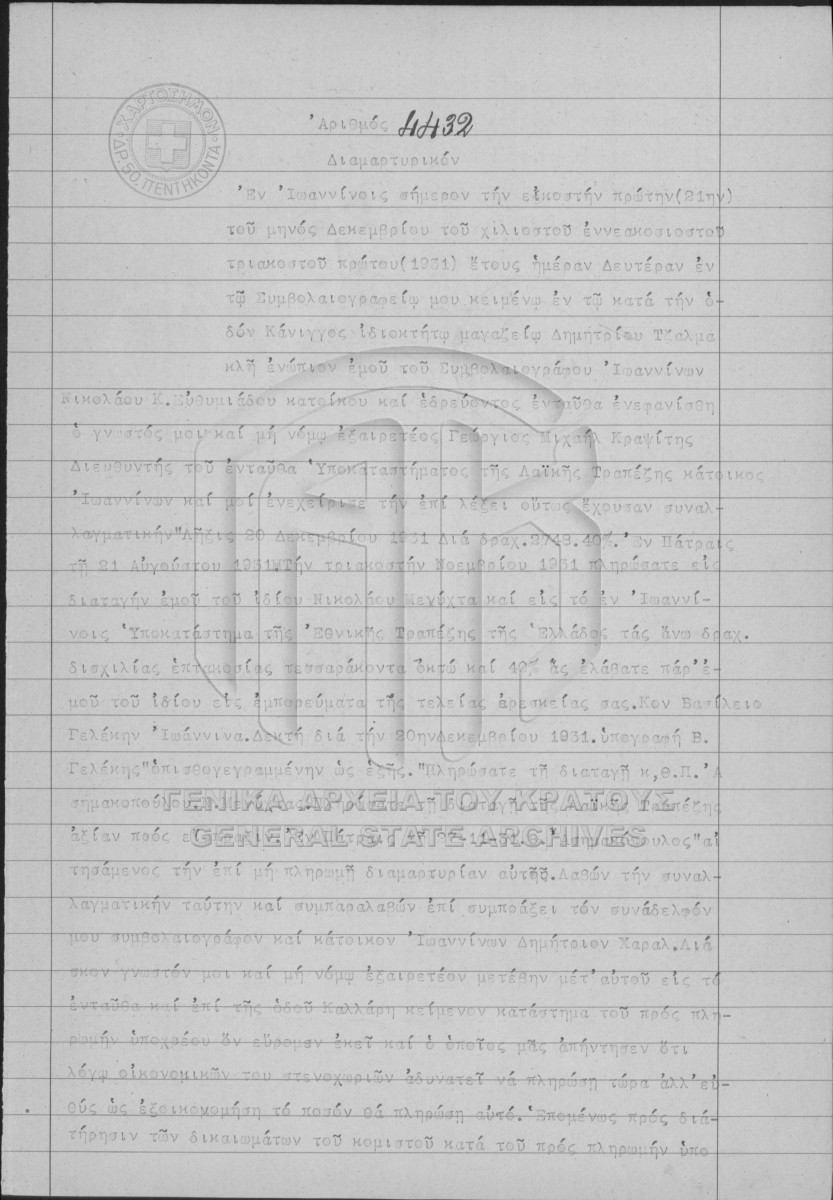 ΧΑΡΤΟΣΗΜΟΝ
ΔΡ. 50. ΠΕΝΤΗΚΟΝΤΑ
Ἀριθμός 4432
Διαμαρτυρικόν
Ἐν Ἰωαννίνοις σήμερον τήν εἰκοστήν πρώτην(21ην)
τοῦ μηνός Δεκεμβρίου τοῦ χιλιοστοῦ ἐννεακοσιοστοῦ
τριακοστοῦ πρώτου(1931) ἔτους ἡμέραν Δευτέραν ἐν
τῷ Συμβολαιογραφείῳ μου κειμένῳ ἐν τῷ κατά τήν ὁ-
δόν Κάνιγγος ἰδιοκτήτῳ μαγαζείῳ Δημητρίου Τζαλμα
κλῆ ἐνώπιον ἐμοῦ τοῦ Συμβολαιογράφου Ἰωαννίνων
Νικολάου Κ.Εὐθυμιάδου κατοίκου καί ἑδρεύοντος ἐνταῦθα ἐνεφανίσθη
ὁ γνωστός μοι καί μή νόμῳ ἐξαιρετέος Γεώργιος Μιχαήλ Κραψίτης
Διευθυντής τοῦ ἐνταῦθα Ὑποκαταστήματος τῆς Λαϊκῆς Τραπέζης κάτοικος
Ἰωαννίνων καί μοί ἐνεχείρισε τήν ἐπί λέξει οὕτως ἔχουσαν συναλ-
λαγματικήν"Λῆξις 20 Δεκεμβρίου 1931 Διά δραχ.2748.40%.Ἐν Πάτραις
τῇ 21 Αὐγούστου 1931.Τήν τριακοστήν Νοεμβρίου 1931 πληρώσατε εἰς
διαταγήν ἐμοῦ τοῦ ἰδίου Νικολάου Μεγύχτα καί εἰς τό ἐν Ἰωαννί-
νοις Ὑποκατάστημα τῆς Ἐθνικῆς Τραπέζης τῆς Ἑλλάδος τάς ἄνω δραχ.
δισχιλίας ἑπτακοσίας τεσσαράκοντα ὀκτώ καί 40% ἅς ἐλάβατε πάρ'ἐ-
μοῦ τοῦ ἰδίου εἰς ἐμπορεύματα τῆς τελείας ἀρεσκείας σας.Κον Βασίλειο
Γελέκην Ἰωάννινα.Δεκτή διά τήν 20ηνΔεκεμβρίου 1931.ὑπογραφή Β.
Γελέκης"ὀπισθογεγραμμένην ὡς ἑξῆς."Πληρώσατε τῇ διαταγῇ κ,Θ.Π.Ἀ
σημακοπούλου
τῇ διαταγῇ τῆς Λαϊκῆς Τραπέζης
ἀξίαν πρός
ΓΕΝΙΚΑ ΑΡΧΕΙΑ ΤΟΥ ΚΡΑΤΟΥΣ
GENERAL STATE ARCHIVES
τησάμενος τήν ἐπί μή πληρωμῇ διαμαρτυρίαν αὐτῆς.Λαβών τήν συναλ-
λαγματικήν ταύτην καί συμπαραλαβών ἐπί συμπράξει τόν συνάδελφόν
μου συμβολαιογράφον καί κάτοικον Ἰωαννίνων Δημήτριον Χαραλ.Διά
σκον γνωστόν μοι καί μή νόμῳ ἐξαιρετέον μετέβην μέτ'αὐτοῦ εἰς τό
ἐνταῦθα καί ἐπί τῆς ὁδοῦ Καλλάρη κείμενον κατάστημα τοῦ πρός πλη-
ρωμήν ὑποχρέου ὅν εὕρομεν ἐκεῖ καί ὁ ὁποῖος μᾶς ἀπήντησεν ὅτι
λόγῳ οἰκονομικῶν του στενοχωριῶν ἀδυνατεῖ νά πληρώσῃ τώρα ἀλλ'εὐ-
θύς ὡς ἐξοικομομήσῃ τό ποσόν θά πληρώσῃ αὐτό.Ἑπομένως πρός διά-
τήρησιν τῶν δικαιωμάτων τοῦ κομιστοῦ κατά τοῦ πρός πληρωμήν ὑπο